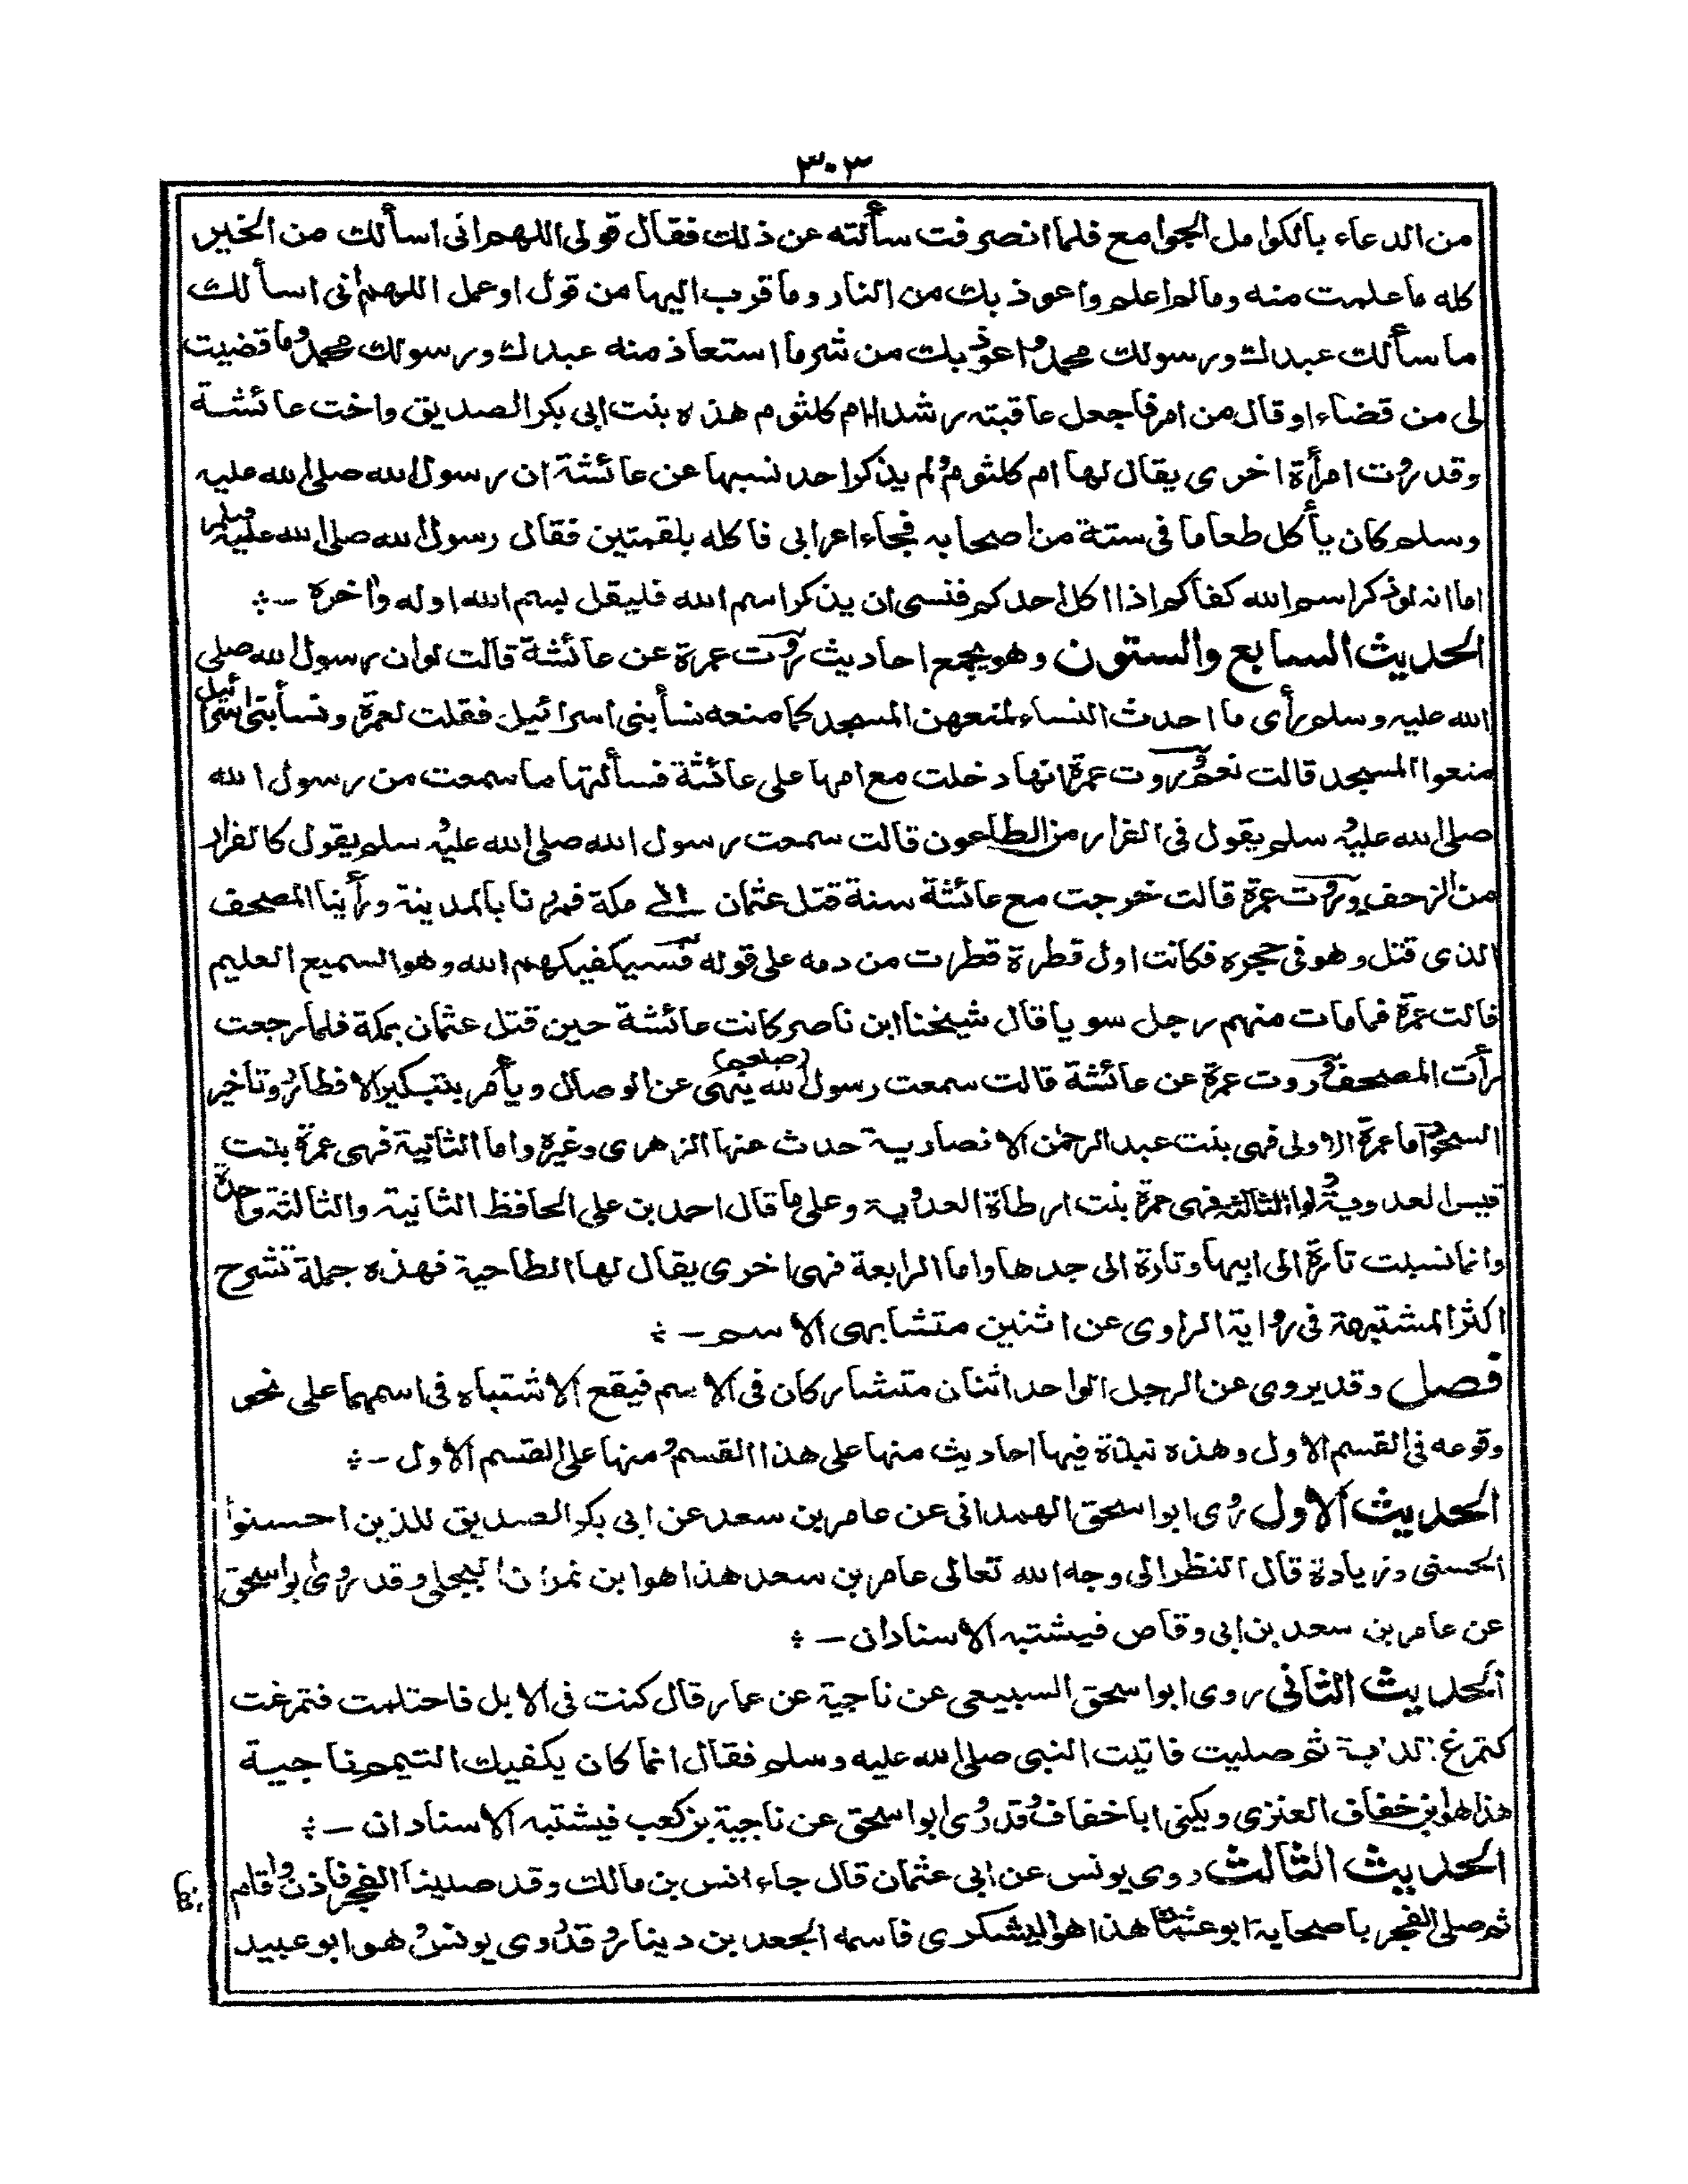 ٣٠٣
من الدعاء بالكوامل الجوامع فلما انصرفت سألته عن ذلك فقال قولى اللهم انى اسألك من الخير
كله ما علمت منه وما لم اعلم واعوذ بك من النار وما قرب اليها من قول او عمل اللهم انى اسألك
ما سألك عبدك ورسولك محمد واعوذ بك من شر ما استعاذ منه عبدك ورسولك محمد وما قضيت
لى من قضاء او قال من امر فاجعل عاقبته رشدا ام كلثوم هذه بنت ابى بكر الصديق واخت عائشة
وقد روت امرأة اخرى يقال لها ام كلثوم ولم يذكر احد نسبها عن عائشة ان رسول الله صلى الله عليه
وسلم كان يأكل طعاما فى ستة من اصحابه فجاء اعرابى فاكله بلقمتين فقال رسول الله صلى الله عليه وسلم
اما انه لو ذكر اسم الله كفاكم اذا اكل احدكم فنسى ان يذكر اسم الله فليقل بسم الله اوله واخره ـ
الحديث السابع والستون وهو يجمع احاديث روت عمرة عن عائشة قالت لو ان رسول الله صلى
الله عليه وسلم رأى ما احدث النساء لمنعهن المسجد كما منعه نسأ بنى اسرائيل فقلت لعمرة ونسأ بنى اسرائيل
منعوا المسجد قالت نعم وروت عمرة انها دخلت مع امها على عائشة فسألتها ما سمعت من رسول الله
صلى الله عليه وسلم يقول فى الفرار من الطاعون قالت سمعت رسول الله صلى الله عليه وسلم يقول كالفرار
من الزحف وروت عمرة قالت خرجت مع عائشة سنة قتل عثمان الى مكة فمررنا بالمدينة ورأينا المصحف
الذى قتل وهو فى حجره فكانت اول قطرة قطرت من دمه على قوله فسيكفيكهم الله وهو السميع العليم
قالت عمرة فما مات منهم رجل سويا قال شيخنا ابن ناصر كانت عائشة حين قتل عثمان بمكة فلما رجعت
رأت المصحف وروت عمرة عن عائشة قالت سمعت رسول الله (صلعم) ينهى عن الوصال ويأمر بتبكير الافطار وتاخير
السحور اما عمرة الاولى فهى بنت عبد الرحمن الانصارية حدث عنها الزهرى وغيره واما الثانية فهى عمرة بنت
قيس العدوية واما الثالثة فهى عمرة بنت ارطاة العدوية وعلى ما قال احمد بن على الحافظ الثانية والثالثة واحدة
وانما نسبت تارة الى ابيها وتارة الى جدها واما الرابعة فهى اخرى يقال لها الطاحية فهذه جملة تشرح
اكثر المشتبهة فى رواية الراوى عن اثنين متشابهى الاسم ـ
فصل وقد يروى عن الرجل الواحد اثنان متشاركان فى الاسم فيقع الاشتباه فى اسمهما على نحو
وقوعه فى القسم الاول وهذه نبذة فيها احاديث منها على هذا القسم ومنها على القسم الأول ـ
الحديث الاول روى ابو اسحق الهمدانى عن عامر بن سعد عن ابى بكر الصديق للذين احسنوا
الحسنى وزيادة قال النظر الى وجه الله تعالى عامر بن سعد هذا هو ابن نمران البجلى وقد روى ابو اسحق
عن عامر بن سعد بن ابى وقاص فيشتبه الاسنادان ـ
الحديث الثانى روى ابو اسحق السبيعى عن ناجية عن عمار قال كنت فى الابل فاحتلمت فتمرغت
كتمرغ الدابة ثم صليت فاتيت النبى صلى الله عليه وسلم فقال انما كان يكفيك التيمم ناجية
هذا هو ابن خفاف العنزى ويكنى ابا خفاف وقد روى ابو اسحق عن ناجية بن كعب فيشتبه الاسنادان ـ
الحديث الثالث روى يونس عن ابى عثمان قال جاء انس بن مالك وقد صلينا الفجر فاذن واقام
ثم صلى الفجر باصحابه ابو عثمان هذا هو اليشكرى فاسمه الجعد بن دينار وقد روى يونس هو ابو عبيد